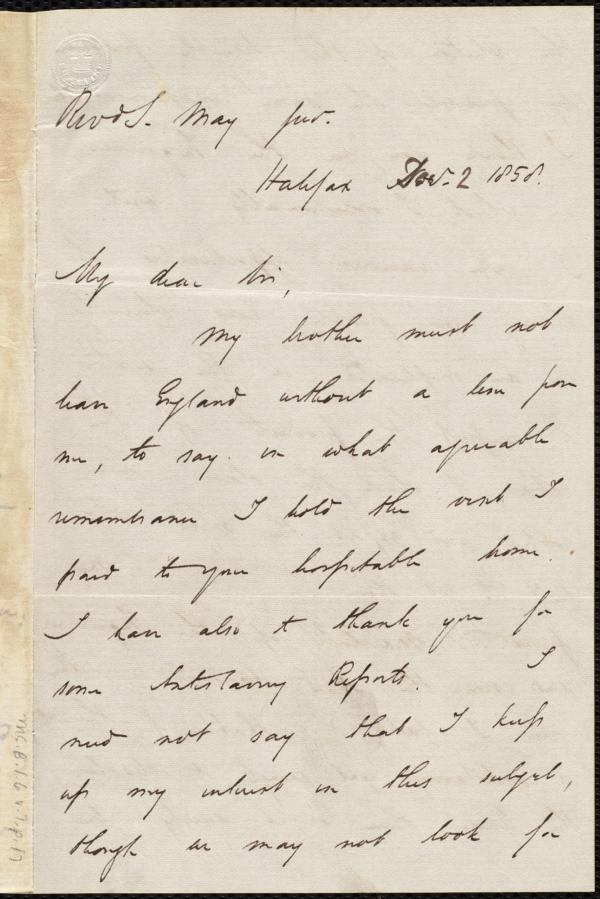 Revd S. May jur.
Halifax Nov. 2 1858.
My dear Sir,
My brother must not
leave England without a line from
me, to say in what agreeable
remembrance I hold the visit I
paid to your hospitable home.
I have also to thank you for
some Antislavery Reports. I
need not say that I keep
up my interest in this subject,
though we may not look for
MS. B.1.6 v.7, p.17